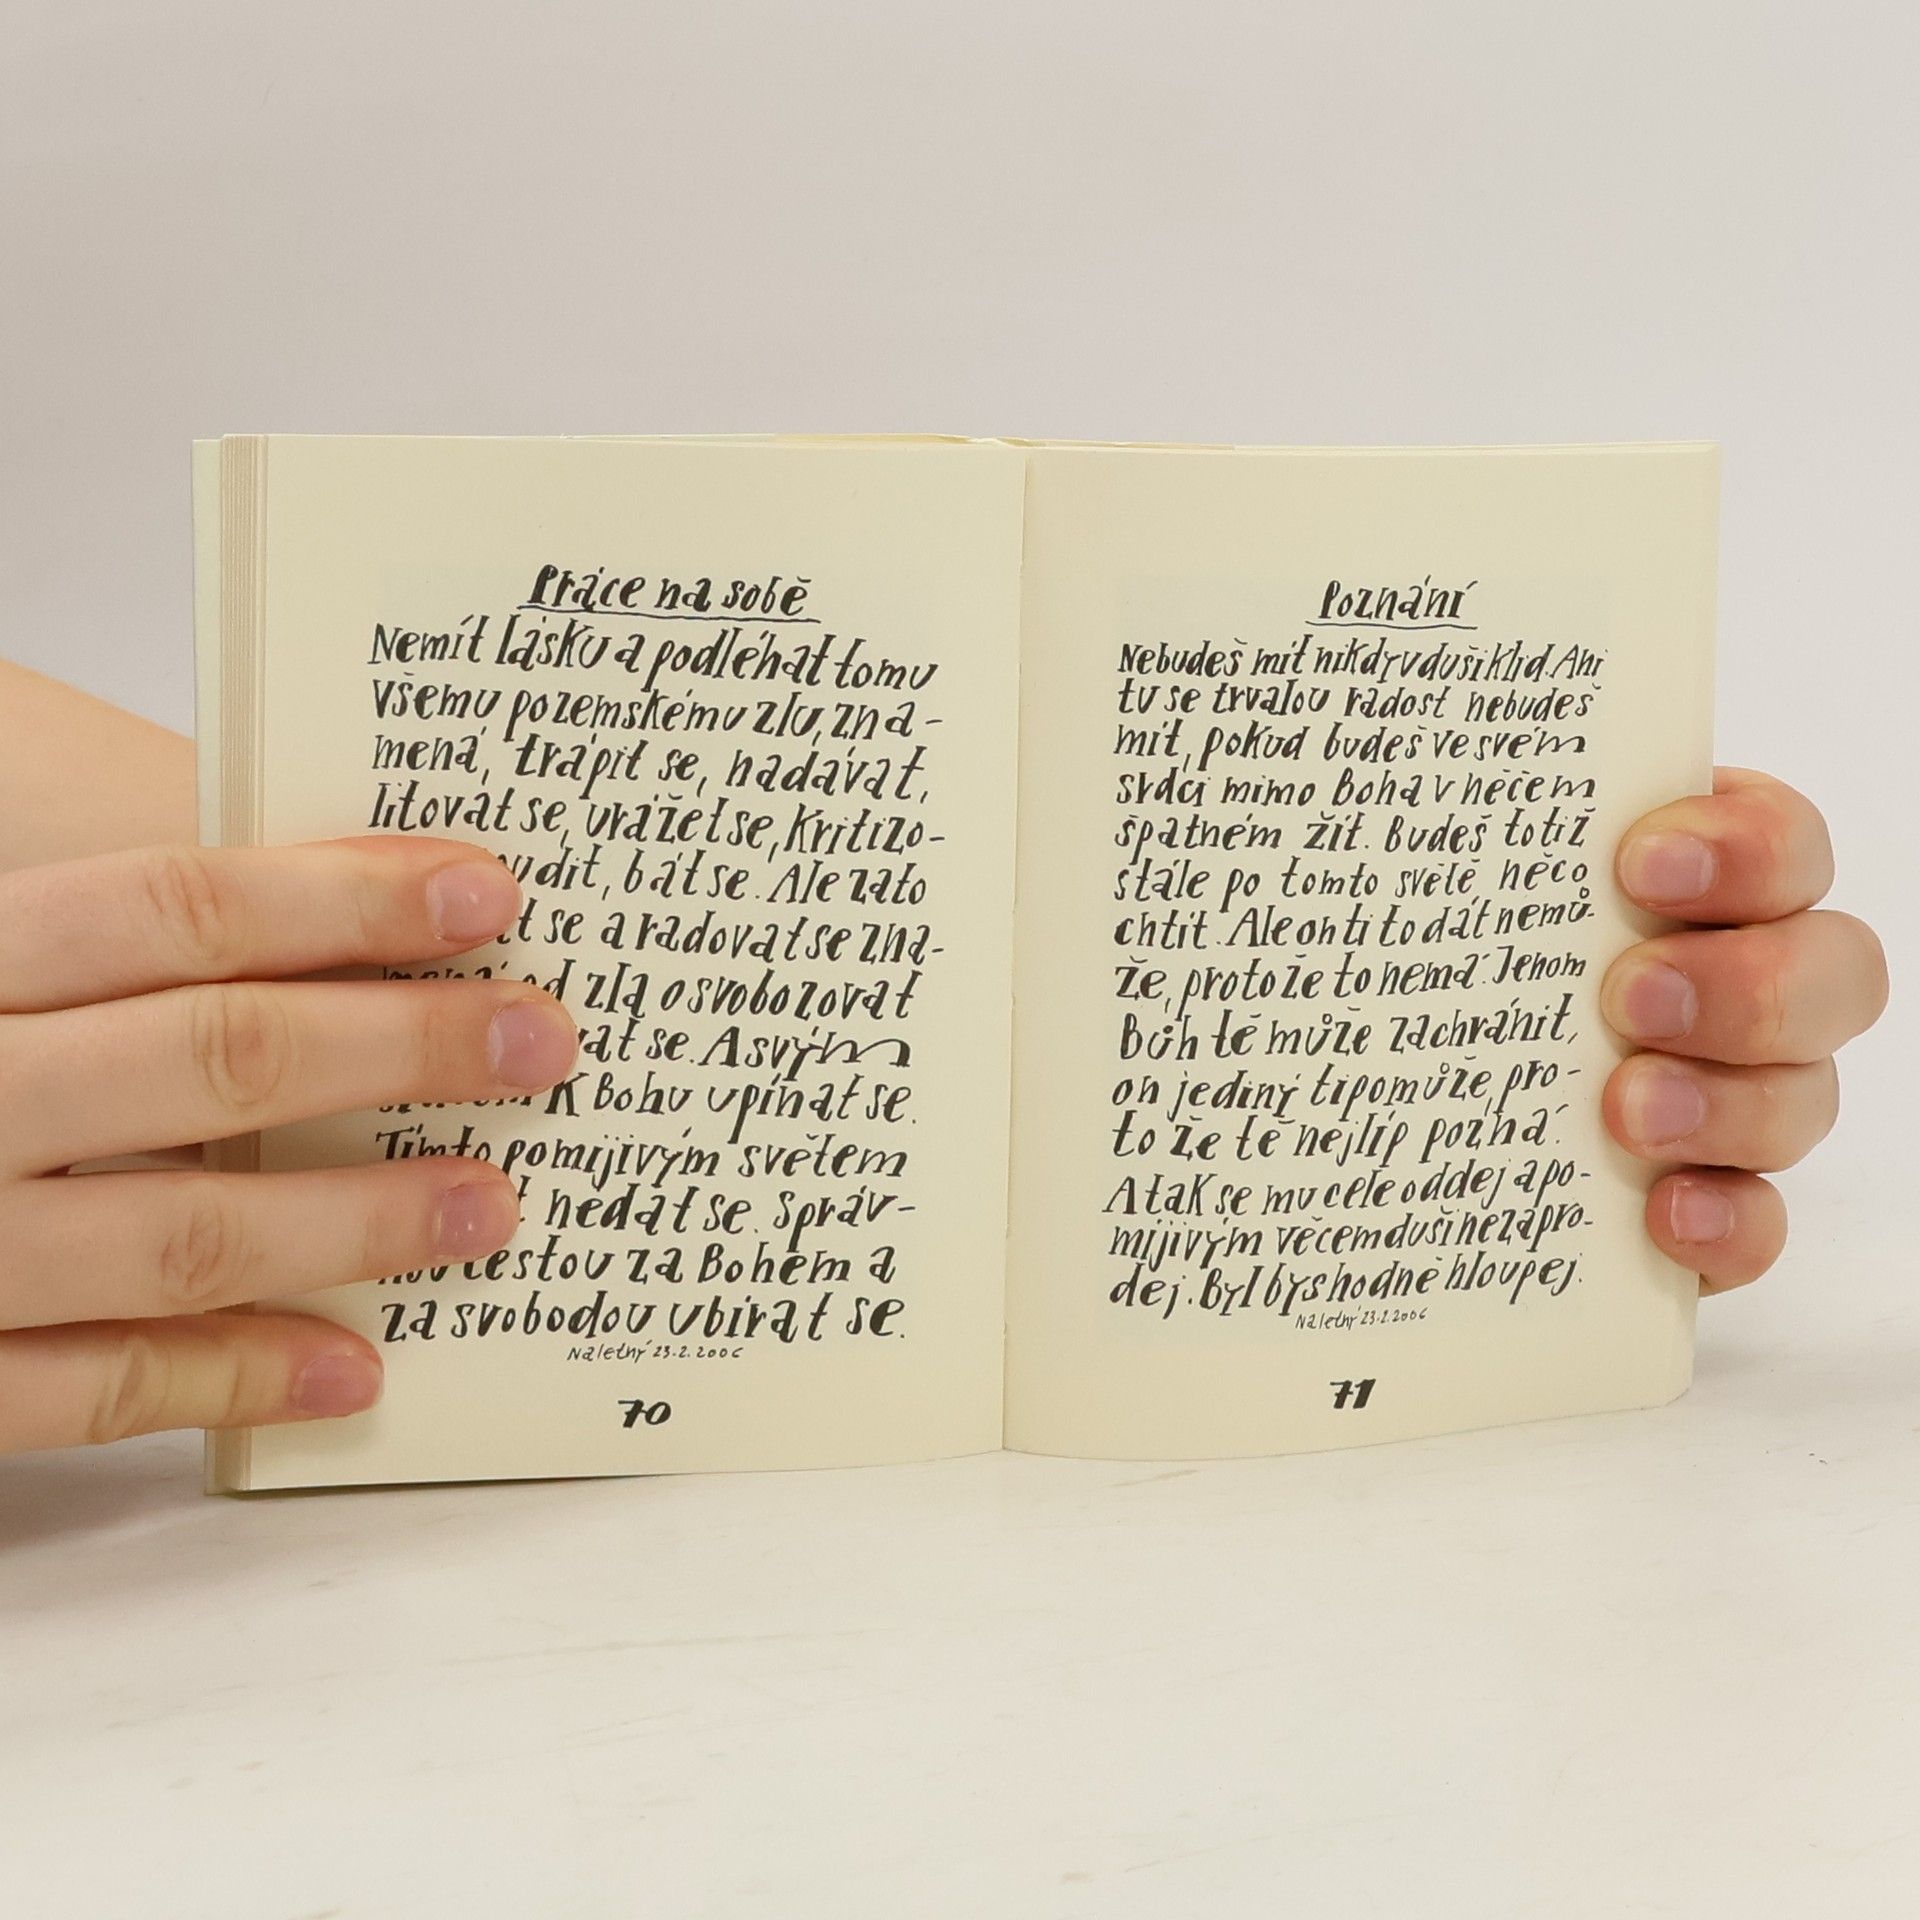 Práce na sobě
Nemít lásku a podléhat tomu
všemu pozemskému zlu, zna-
mená, trápit se, nadávat,
litovat se, urážet se, kritizo-
bát se. Ale zato
se a radovat se zna-
od zla osvobozovat
se. A svým
K Bohu upínat se.
Tímto pomíjivým světem
nedat se. Správ-
cestou za Bohem a
za svobodou ubírat se.
Na letný 23.2.2006
70
Poznání
Nebudeš mít nikdy v duši klid. Ani
tu se trvalou radost nebudeš
mít, pokud budeš ve svém
srdci mimo Boha v něčem
špatném žít. Budeš totiž
stále po tomto světě něco
chtít. Ale on ti to dát nemů-
že, protože to nemá. Jenom
Bůh tě může zachránit,
on jediný ti pomůže, pro-
to že tě nejlíp pozná.
A tak se mu cele oddej a po-
míjivým věcem duši nezapro-
dej. Byl bys hodně hloupej.
Na letný 23.2.2006
71